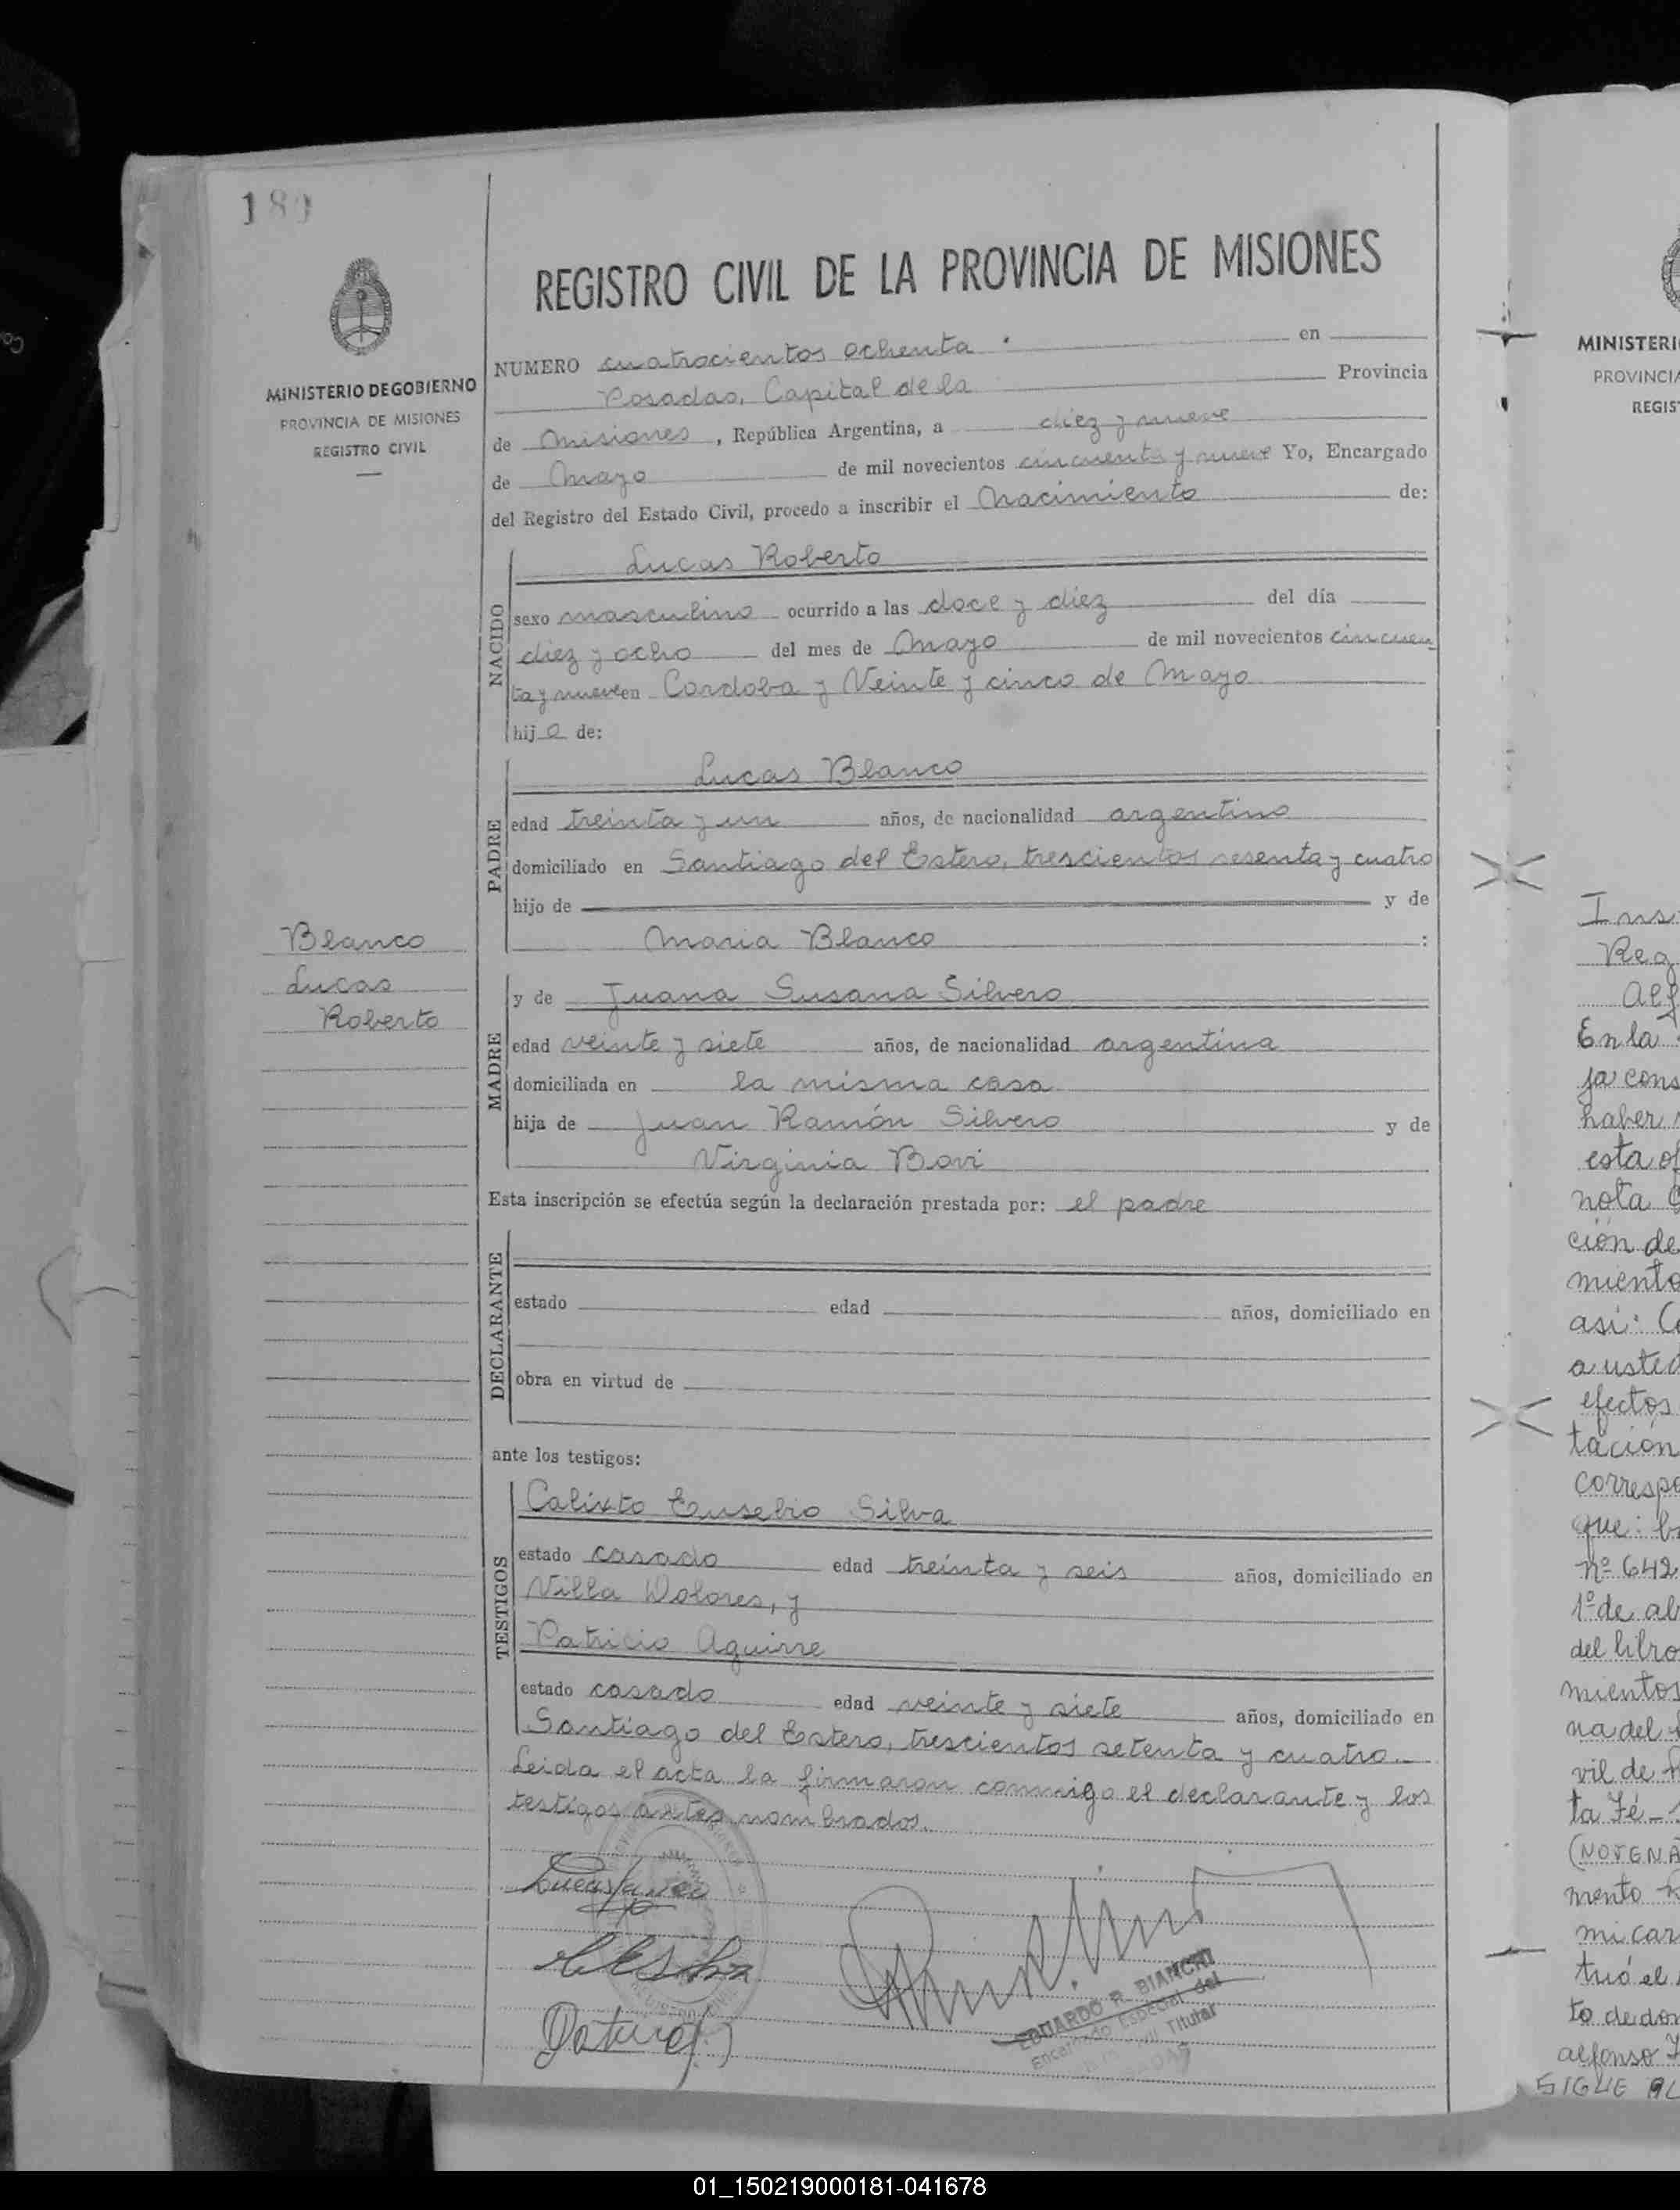 180
MINISTERIO DE GOBIERNO
PROVINCIA DE MISIONES
REGISTRO CIVIL
Blanco
Lucas
Roberto
REGISTRO CIVIL DE LA PROVINCIA DE MISIONES
NUMERO cuatrocientos ochenta . en
Posadas, Capital de la Provincia
de Misiones, República Argentina, a diez y nueve
de Mayo de mil novecientos cincuenta y nueve Yo, Encargado
del Registro del Estado Civil, procedo a inscribir el Nacimiento de:
NACIDO
Lucas Roberto
sexo masculino ocurrido a las doce y diez del día
diez y ocho del mes de Mayo de mil novecientos cincuen
ta y nueve en Cordoba y Veinte y cinco de Mayo
hijo de:
PADRE
Lucas Blanco
edad treinta y un años, de nacionalidad argentino
domiciliado en Santiago del Estero, trescientos sesenta y cuatro
hijo de y de
Maria Blanco :
MADRE
y de Juana Susana Silvero
edad veinte y siete años, de nacionalidad argentina
domiciliada en la misma casa
hija de Juan Ramón Silvero y de
Virginia Bovi
Esta inscripción se efectúa según la declaración prestada por: el padre
DECLARANTE
estado edad años, domiciliado en
obra en virtud de
ante los testigos:
TESTIGOS
Calixto Eusebio Silva
estado casado edad treinta y seis años, domiciliado en
Villa Dolores, y
Patricio Aguirre
estado casado edad veinte y siete años, domiciliado en
Santiago del Estero, trescientos setenta y cuatro.
Leida el acta la firmaron conmigo el declarante y los
testigos antes nombrados.
EDUARDO R. BIANCHI
Encargado Especial del
Titular
MINISTERI
PROVINCIA
REGIST
Ins
Reg
Alf
En la
ja cons
haber
esta of
nota
ción de
miento
asi: C
a usted
efectos
tación
correspo
que: b
nº 642
1º de ab
del libro
mientos
na del
vil de
ta Fé -
(NOTENA
mento
mi car
trió el
to de don
alfonso
SIGUE AL
01_150219000181-041678